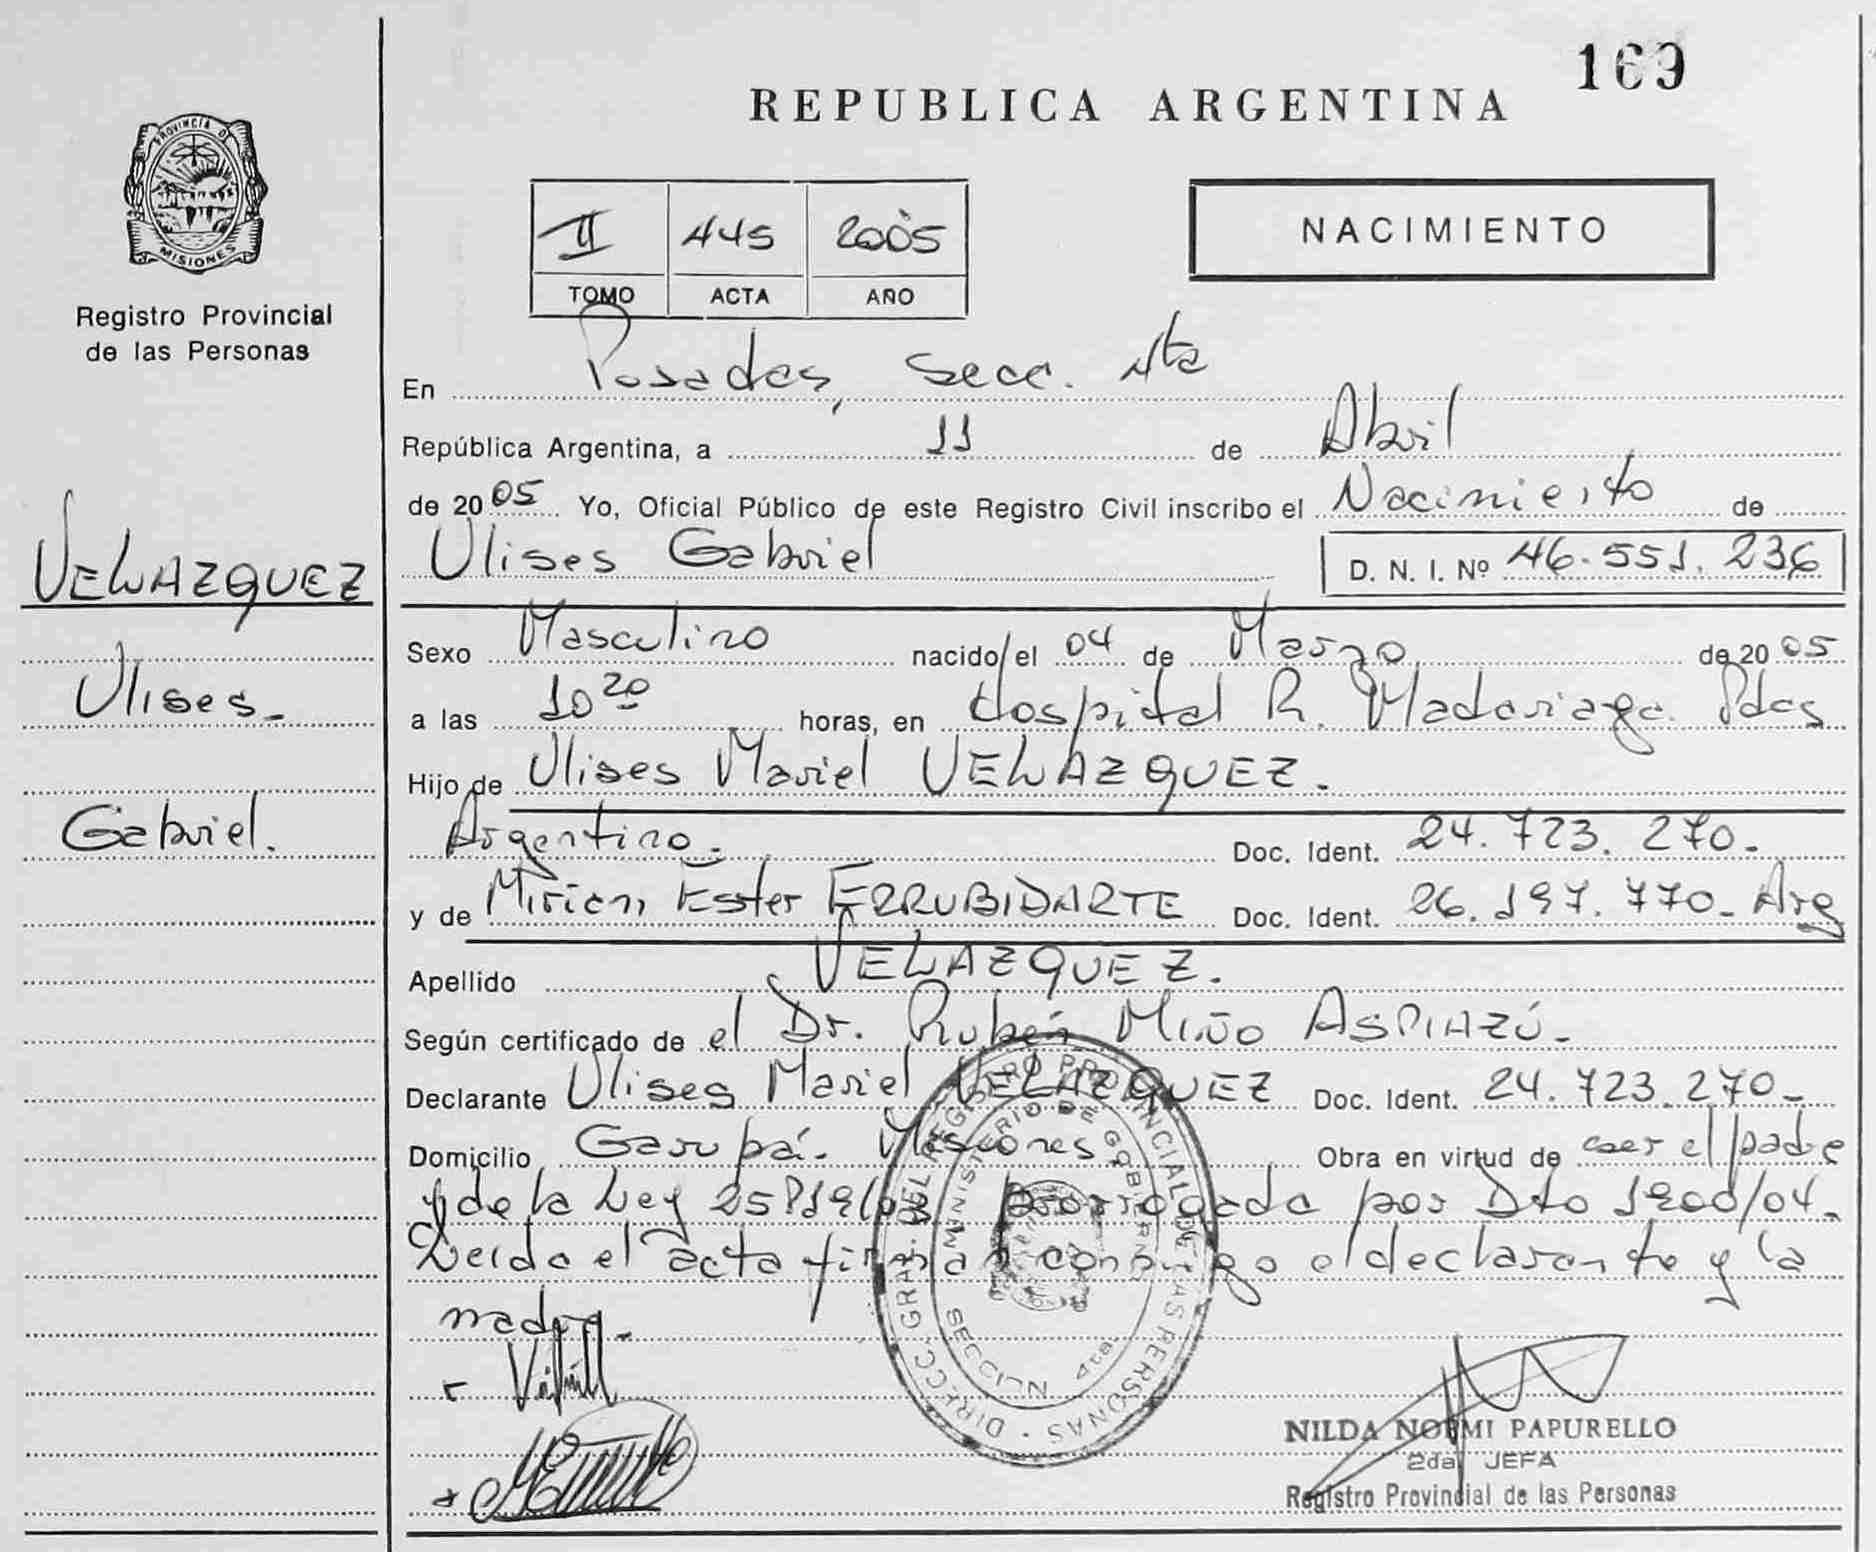 169
REPUBLICA ARGENTINA
PROVINCIA DE MISIONES
Registro Provincial
de las Personas
II 445 2005
TOMO ACTA AÑO
NACIMIENTO
En Posadas, Secc. 4ta
República Argentina, a 11 de Abril
de 2005 Yo, Oficial Público de este Registro Civil inscribo el Nacimiento de
Ulises Gabriel D. N. I. Nº 46.551.236
VELAZQUEZ
Ulises
Gabriel.
Sexo Masculino nacido el 04 de Marzo de 2005
a las 10 20 horas, en Hospital R. Madariaga Pdas
Hijo de Ulises Mariel VELAZQUEZ.
Argentino. Doc. Ident. 24.723.270-
y de Mirian Ester ERRUBIDARTE Doc. Ident. 26.197.770- Arg
Apellido VELAZQUEZ.
Según certificado de el Dr. Rubén Miño ASPIAZÚ-
Declarante Ulises Mariel VELAZQUEZ Doc. Ident. 24.723.270-
Domicilio Garupá- Misiones Obra en virtud de ser el padre
y de la Ley 25819/03 prorrogada por Dto 1900/04-
Leída el acta firman conmigo el declarante y la
madre-
DIRECC. GRAL. DEL REGISTRO PROVINCIAL DE LAS PERSONAS
MINISTERIO DE GOBIERNO
SECCION 4ta.
NILDA NOEMI PAPURELLO
2da JEFA
Registro Provincial de las Personas